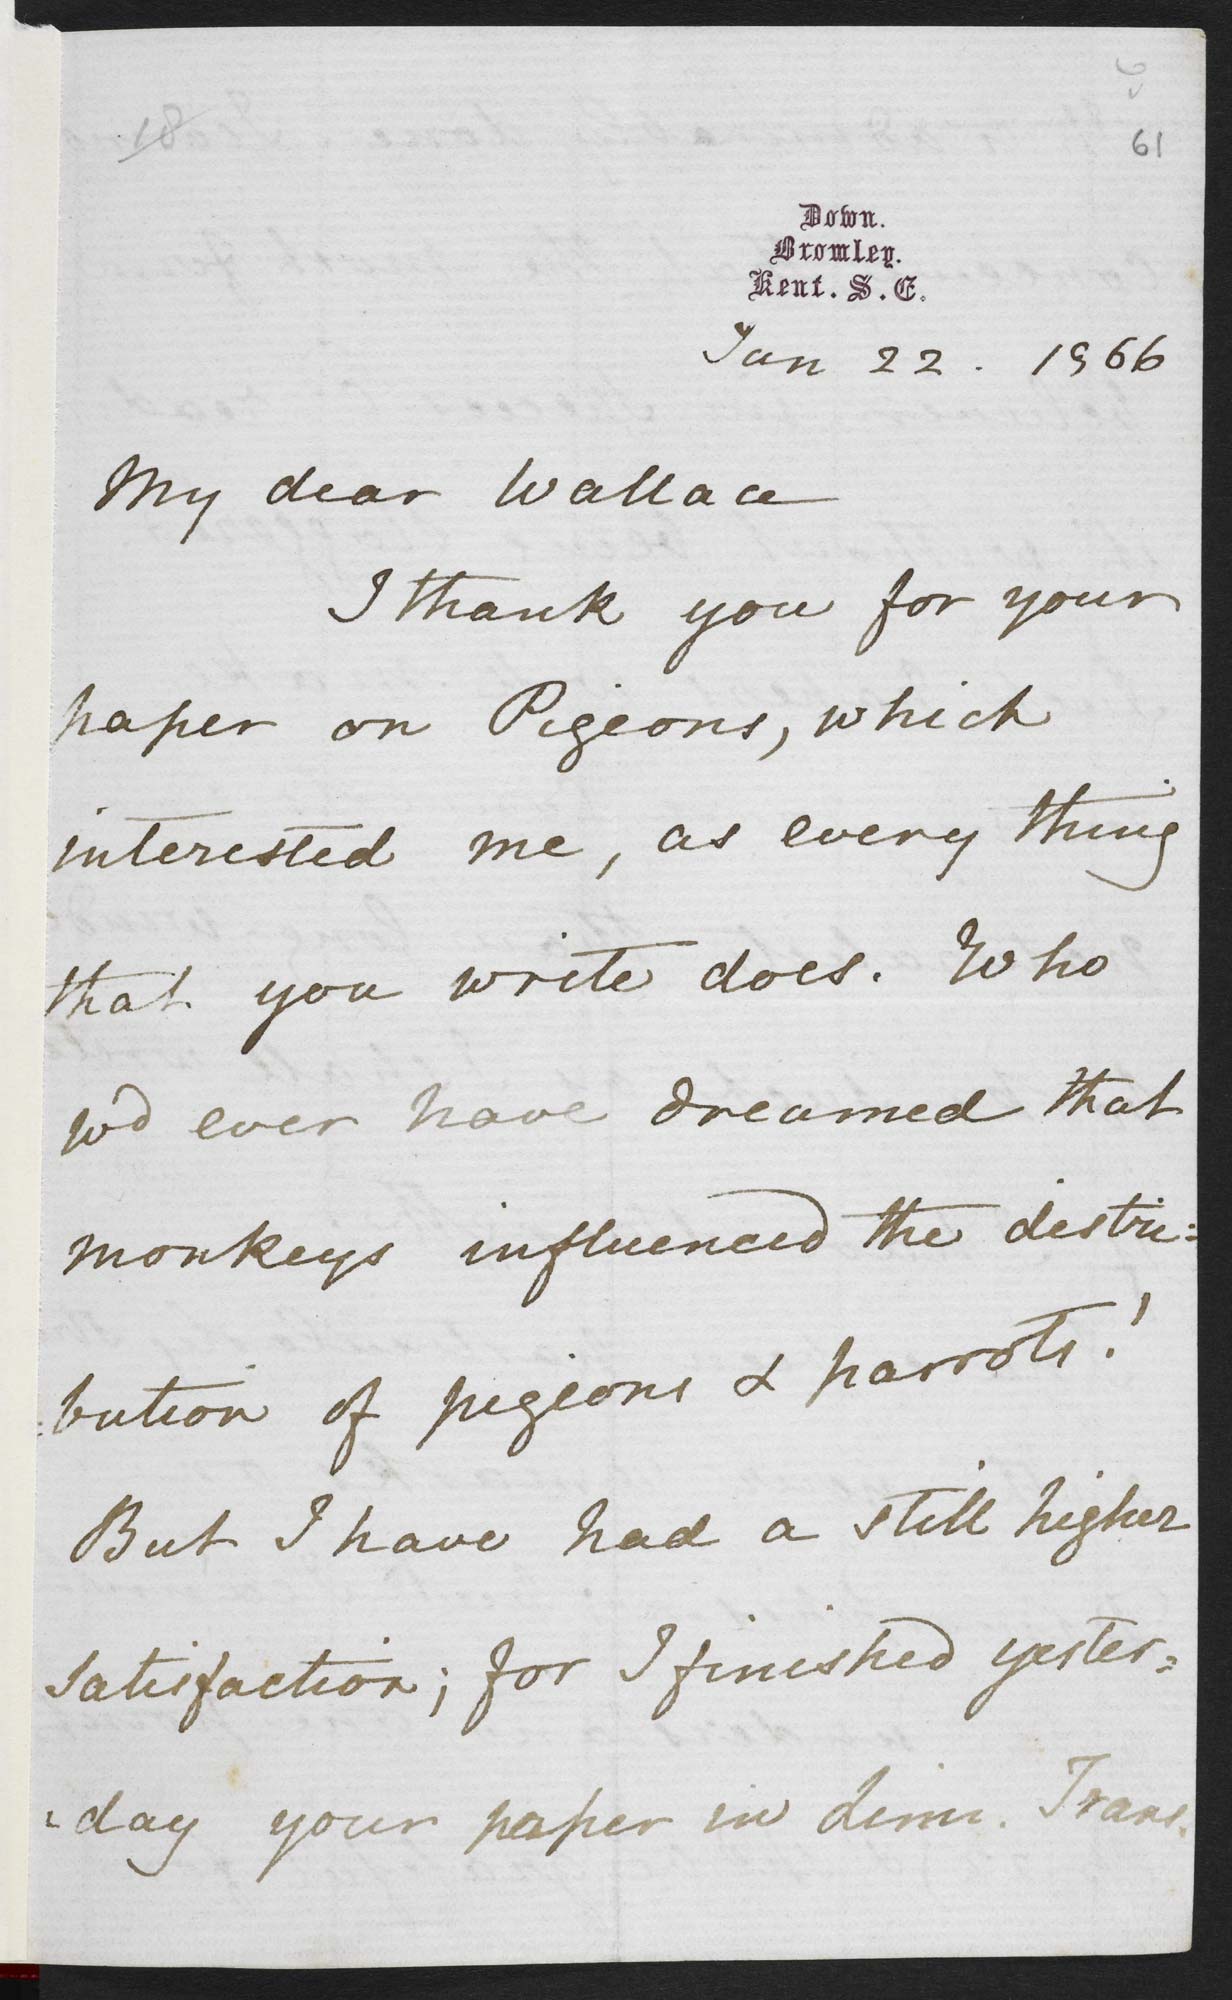 18
61
Down.
Bromley.
Kent. S.E.
Jan 22. 1866
My dear Wallace
I thank you for your
paper on Pigeons, which
interested me, as every thing
that you write does. Who
wd ever have dreamed that
monkeys influenced the distri=
=bution of pigeons & parrots!
But I have had a still higher
satisfaction; for I finished yester=
=day your paper in Linn. Trans.